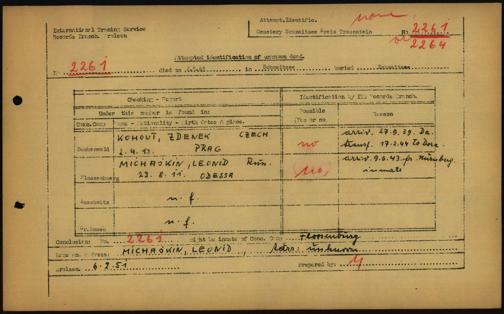 none
International Tracing Service
Records Branch, Arolsen
Attempt.Identific.
Cemetery Schmeitsee Kreis Traunstein
No. 2261
or 2264
Attempted identification of unknown dead.
No. 2261 died on in Schmeitsee buried Schmeitsee
Checking - Report
Identification by ITS Records Branch.
Under this number is found in:
Possible
Yes or no
Reason
Conc.Camp Name - Nationality - Birth Date & place.
KOHOUT, ZDENEK CZECH
arriv. 27.9.39. Da.
Buchenwald 2.4.13. PRAG
no
transf. 17.2.44 to Dora.
MICHASKIN, LEONID Rus.
arriv. 9.6.43. fr. Nürnberg
Flossenburg 23.8.11. ODESSA
no,
inmate
Auschwitz n.f.
n.f.
Conclusion: No. 2261 might be inmate of Conc. Camp Flossenburg
MICHASKIN, LEONID unknown
Arolsen 6.2.51
Prepared by: